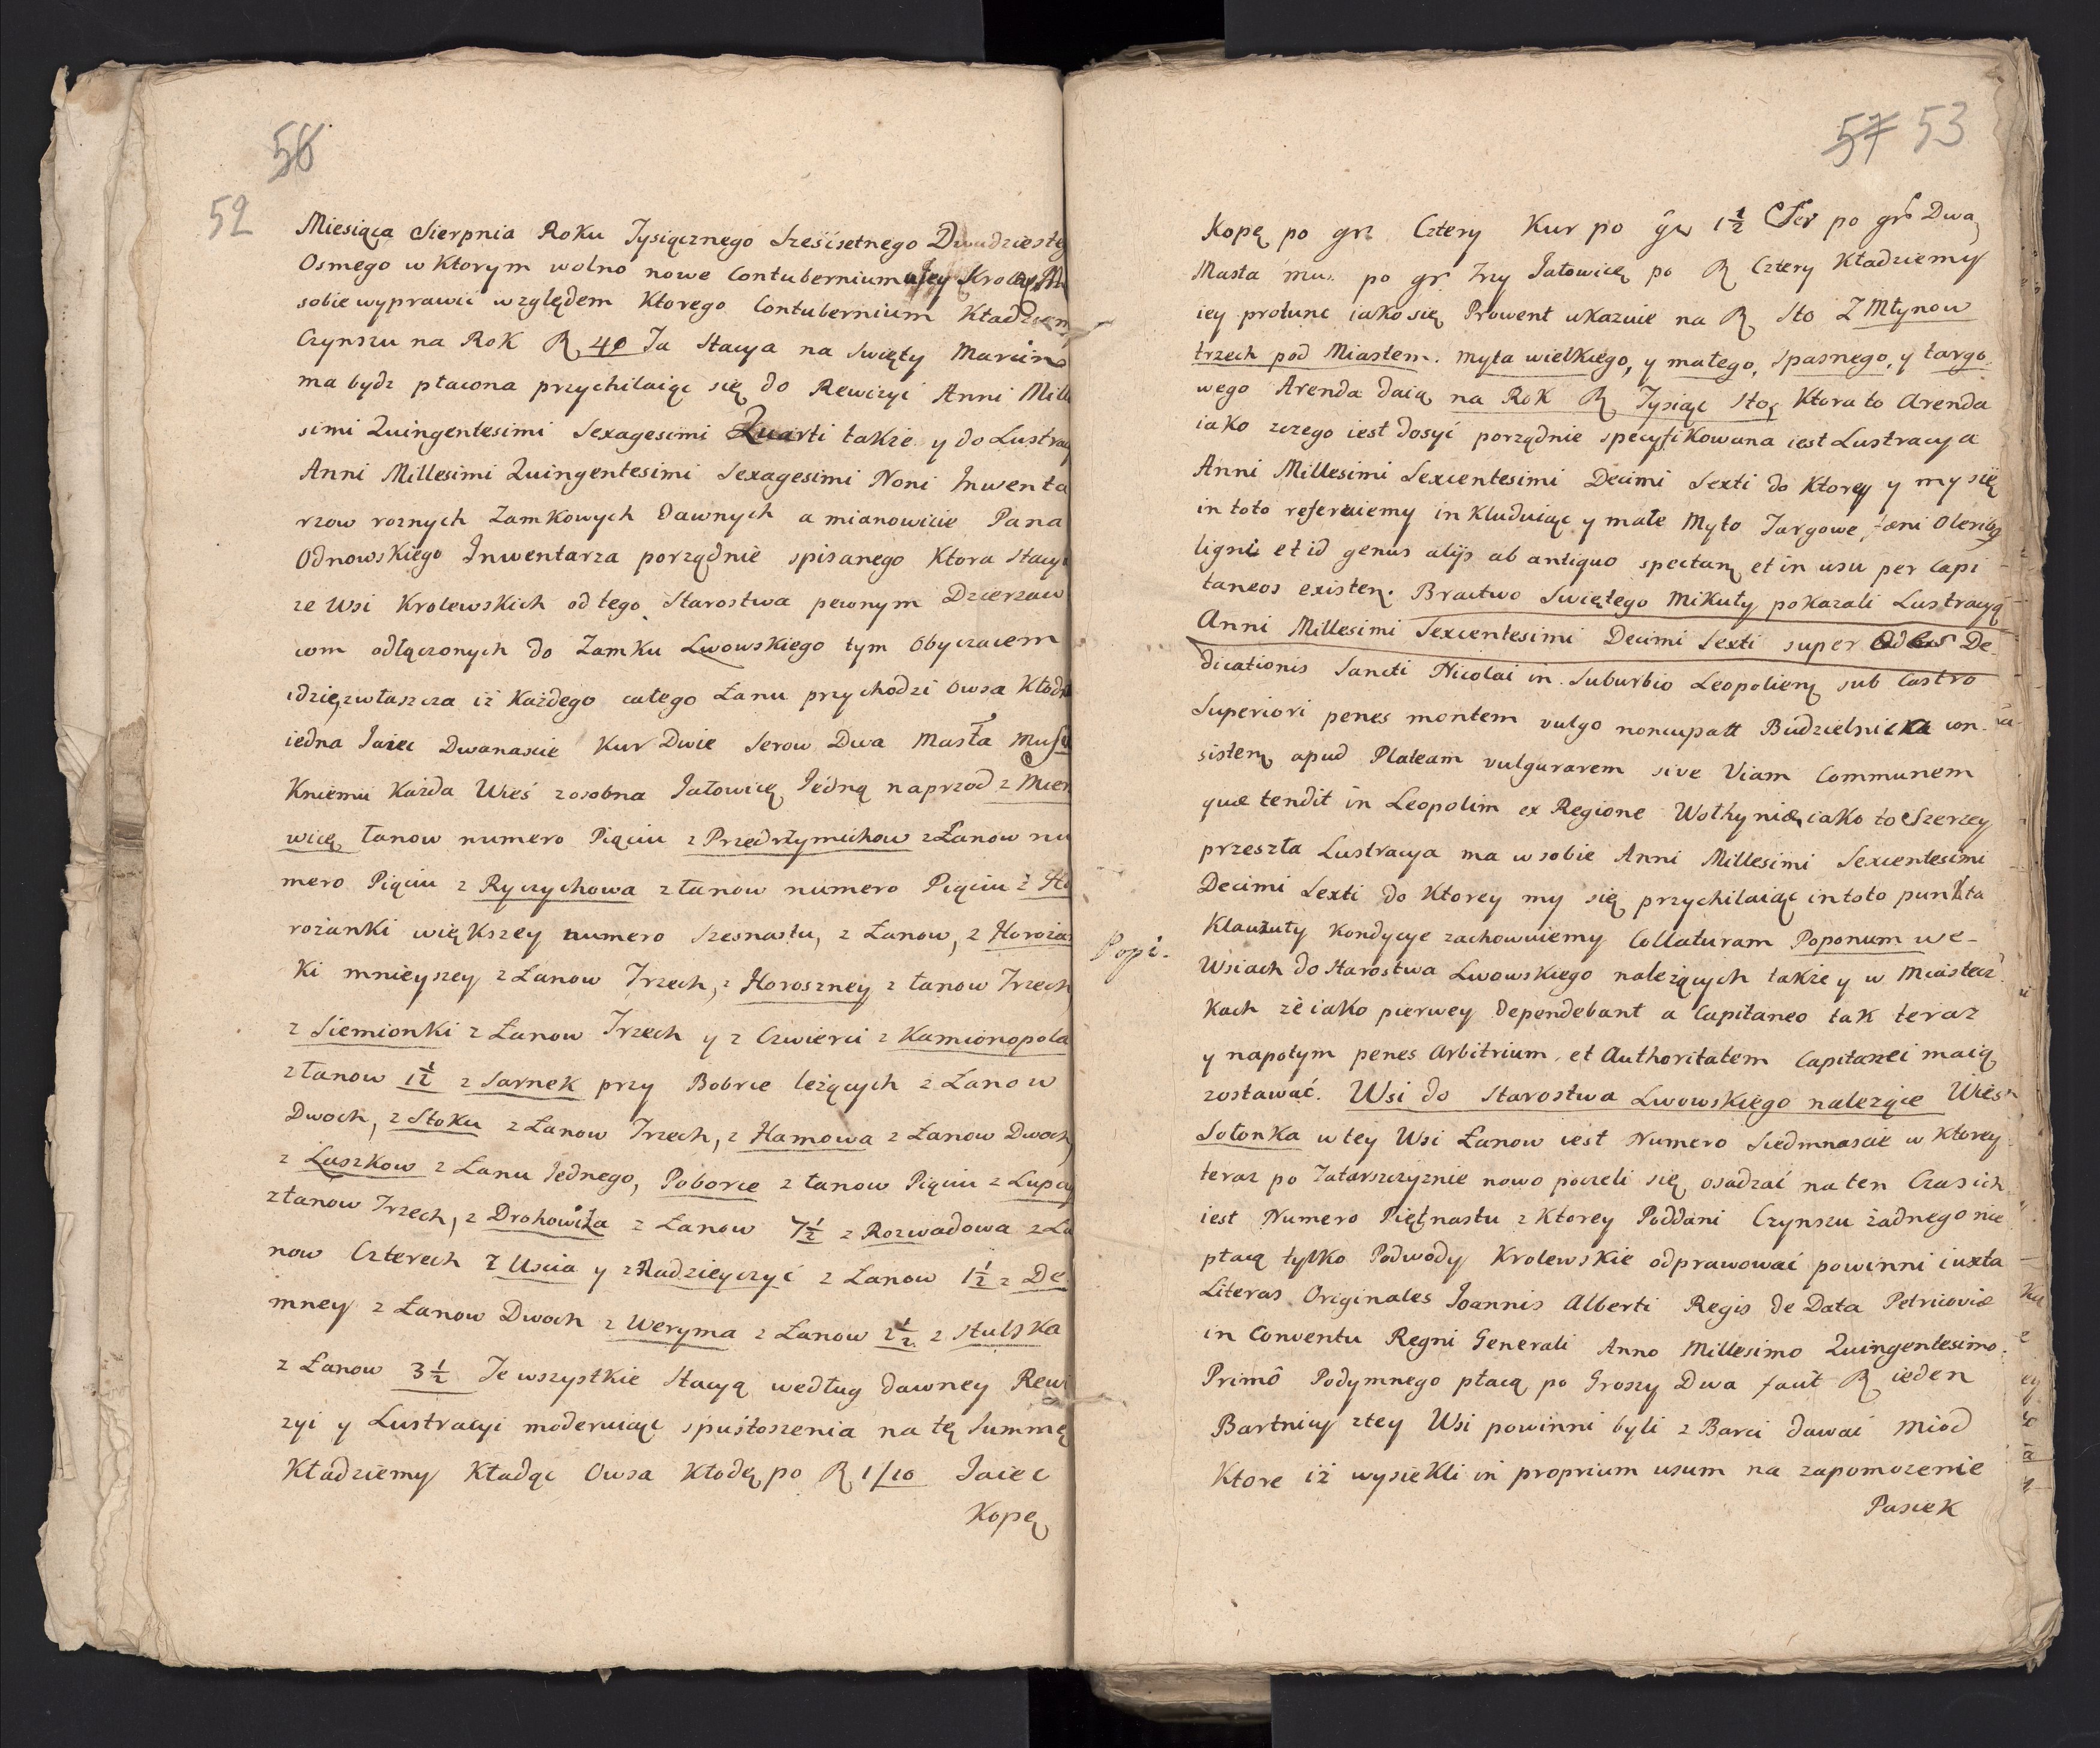 56
52
Miesiąca Sierpnia Roku Tysiącznego Sześćsetnego Dwudziesteg
Osmego w Ktorym wolno nowe Contubernium
sobie wyprawić względem Ktorego Contubernium Kładziem
Czynszu na Rok 40 Ta Stacya na Swięty Marcin
ma bydz płacona przychilaiąc się do Rewizyi Anni Mille
simi Quingentesimi Sexagesimi Quarti także y do Lustracy
Anni Millesimi Quingentesimi Sexagesimi Noni Inwenta
rzow roznych Zamkowych dawnych a mianowicie Pana
Odnowskiego Inwentarza porządnie spisanego Ktora Stacy
ze Wsi Krolewskich od tego Starostwa pewnym Dzierzaw
com odłączonych do Zamku Lwowskiego tym Obyczaiem
idzie, zwłaszcza iż Każdego całego Łanu przychodzi Owsa Kłod
iedna Jaiec Dwanascie Kur Dwie Serow Dwa Masła
Kniemu Każda Wieś zosobna Jałowicę Jedną naprzod z Mier
wicę łanow numero Piąciu z Przedrzymichow z Łanow nu
mero Piąciu z Ryczychowa z łanow numero Piąciu z Ho
rożanki większey numero Szesnastu, z Łanow, z Horożan
Ki mnieyszey z Łanow Trzech, z Horoszney z łanow Trzech
z Siemionki z Łanow Trzech y z Czwierci z Kamionopola
z łanow 1½ z Sarnek przy Bobrce leżących z Łanow
Dwoch, z Stoku z Łanow Trzech, z Hamowa z Łanow Dwoch,
z Laszkow z Łanu Jednego, Poborce z łanow Piąciu z Lupcy
z łanow Trzech, z Drohowiża z Łanow 7½ z Rozwadowa z Ła
now Czterech z Uscia y z Nadzieyczyć z Łanow 1½ z De
mney z Łanow Dwoch z Weryma z Łanow 2½ z Stulska
z Łanow 3½ Te wszystkie Stacyą według dawney Rewi
zyi y Lustracyi moderuiąc spustoszenia na tę Summę
Kładziemy Kładąc Owsa Kłodę po 1/10 Jaiec
Kopę
57 53
Kopę po grz Cztery Kur po gr 1½ Ser po gr Dwa
Masła po gr Trzy Jałowicę po Cztery Kładziemy
iey protunc iako się Prowent ukazuie na Sto Z Młynow
trzech pod Miastem. Myta wielkiego, y małego, Spasnego, y targo
wego Arenda daią na Rok Tysiąc Sto, Ktora to Arenda
iako zczego iest dosyć porządnie specyfikowana iest Lustracya
Anni Millesimi Sexcentesimi Decimi Sexti do Ktorey y my się
in toto referuiemy inkluduiąc y małe Myto Targowe, fæni Oleris
ligni et id genus alijs ab antiquo spectan et in usu per Capi
taneos existen. Bractwo Swiętego Mikuły pokazali Lustracyą
Anni Millesimi Sexcentesimi Decimi Sexti super De
dicationis Sancti Nicolai in Suburbio Leopolien sub Castro
Superiori penes montem vulgo noncupatt Budzielnicka con
sisten apud Plateam vulgararem sive Viam Communem
quæ tendit in Leopolim ex Regione Wołhyniæ, iako to Szerzey
przeszła Lustracya ma w sobie Anni Millesimi Sexcentesimi
Decimi Sexti do Ktorey my się przychilaiąc in toto punkta
Klauzuły Kondycye zachowuiemy Collaturam Poponum we
Popi.
Wsiach do Starostwa Lwowskiego należących także y w Miastecz
Kach że iako pierwey dependebant a Capitaneo tak teraz
y napotym penes Arbitrium et Authoritatem Capitanei maią
zostawać. Wsi do Starostwa Lwowskiego należące Wieś
Sołonka w tey Wsi Łanow iest Numero Siedmnascie w Ktorey
teraz po Tatarszczyznie nowo poczeli się osadzać na ten Czas ich
iest Numero Piętnastu z Ktorey Poddani Czynszu żadnego nie
płacą tylko Podwody Krolewskie odprawować powinni iuxta
Literas Originales Joannis Alberti Regis de Data Petricoviæ
in Conventu Regni Generali Anno Millesimo Quingentesimo
Primô Podymnego płacą po Groszy Dwa faut ieden
Bartnicy z tey Wsi powinni byli z Barci dawać Miod
Ktore iż wysiekli in proprium usum na zapomozenie
Pasiek